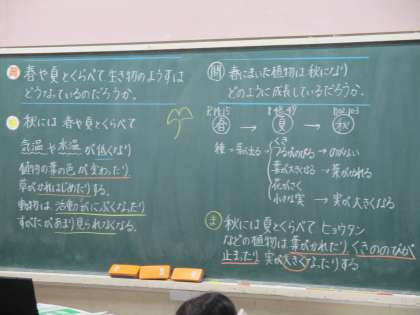 問 春や夏とくらべて生き物のようすは
どうなっているのだろうか。
秋には 春や夏とくらべて
気温や水温が低くなり
植物の葉の色が変わったり
草がかれはじめたりする。
動物は活動がにぶくなったり
すがたがあまり見られなくなる。
問 春にまいた植物は秋になり
どのように成長しているだろうか。
春 → 夏 → 秋
種 → 芽が出る
くき
つるがのびる → のびない
葉が大きくなる → 葉がかれる
花がさく
小さな実 → 実が大きくなる
ま 秋には夏とくらべて ヒョウタン
などの植物は葉がかれたりくきののびが
止まったり 実が大きくなったりする